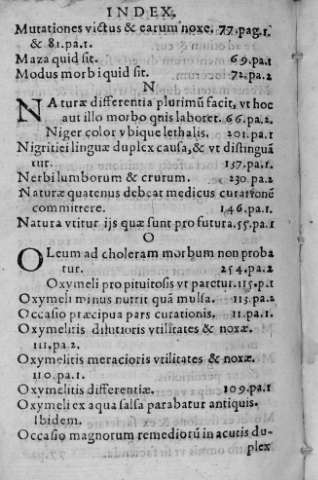 INDEX.
Mutationes victus & earum noxe. 77.pag.1.
& 81.pa.1.
Maza quid sit. 69.pa.1
Modus morbi quid sit. 72.pa.2
N
NAturæ differentia plurimū facit, vt hoc
aut illo morbo qnis laboret. 66.pa.2.
Niger color vbique lethalis. 201.pa.1
Nigritiei linguæ duplex causa, & vt distinguā
tur. 137.pa.1.
Nerbi lumborum & crurum. 230.pa.2
Naturæ quatenus debeat medicus curationē
committere. 146.pa.1.
Natura vtitur ijs quæ sunt pro futura.55.pa.1
O
OLeum ad choleram morbum non proba
tur. 254.pa.2
Oxymeli pro pituitosis vt paretur.115.p.1
Oxymeli minus nutrit quā mulsa. 113.pa.2
Occasio præcipua pars curationis. 11.pa.1.
Oxymelitis dilutioris vtilitates & noxæ.
111.pa.2.
Oxymelitis meracioris vtilitates & noxæ.
110.pa.1.
Oxymelitis differentiæ. 109.pa.1
Oxymeli ex aqua salsa parabatur antiquis.
Ibidem.
Occasio magnorum remediorū in acutis du-
plex